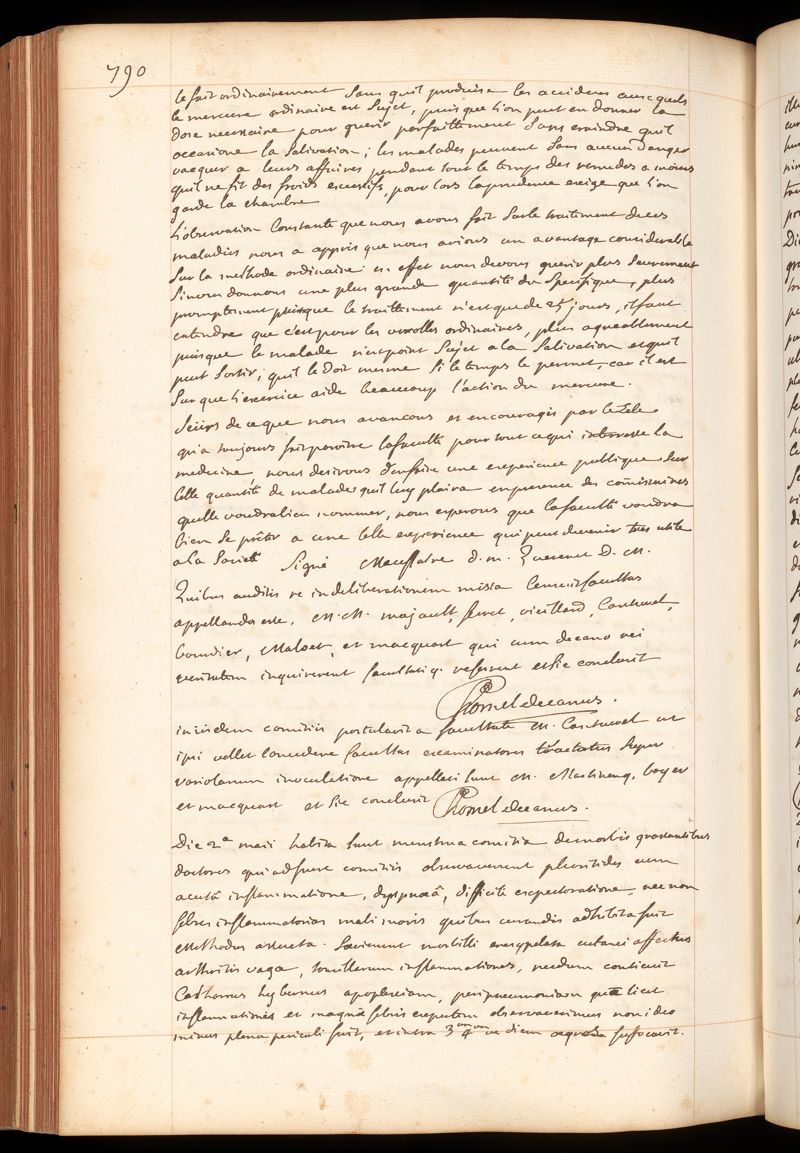 790
le fait ordinairement sans qu'il produise les accidens auxquels
le mercure ordinaire est sujet, puisque l'on peut en donner la
dose necessaire pour guerir parfaittement sans craindre qu'il
occasione la salivation; les malades peuvent sans aucun danger
vacquer a leurs affaires pendant tout le temps des remedes a moins
qu'il ne fit des froids excessifs, pour lors la prudence exige que l'on
garde la chambre
L'observation constante que nous avons fait sur le traitement de ces
maladies nous a appris que nous avions un avantage considerable
sur la méthode ordinaire: en effet nous devons guerir plus seurement
si nous donnons une plus grande quantité du specifique, plus
promptement puisque le traittement n'est que de 25 jours, il faut
entendre que c'est pour les verolles ordinaires, plus agreablement
puisque le malade n'est point sujet a la salivation et qu'il
peut sortir, qu'il le doit mesme si le temps le permet, car il est
sur que l'exercice aide beaucoup l'action du mercure.
Seürs de ce que nous avancons et encouragés par le zele
qu'a toujours fait paroitre la faculté pour tout ce qui interesse la
medecine nous desirons d'en faire une experience publique sur
telle quantité de malades qu'il luy plaira en presence des comissaires
qu'elle voudra bien nommer, nous esperons que la faculté voudra
bien se prêter a une telle experience qui peut devenir tres utile
a la societé signé d. m. D. M.
Quibus auditis re in deliberationem missa censuit facultas
appellandos esse, M. M. majault, ferret, vieillard, Cantwel,
bourdier, Maloet, et macquart qui cum decano rei
veritatem inquirerent facultati q. referrent et sic conclusit
Chomel decanus.
in iisdem comitiis postulavit a facultate M. Cantwel ut
ipsi vellet concedere facultas examinatores tractatus super
variolarum inoculatione appellati sunt M. Martinenq, boyer
et macquart et sic conclusit Chomel decanus.
Die 2a maii habita sunt menstrua comitia de morbis grassantibus
doctores qui adfuere comitiis observaverunt pleuritides cum
acutâ inflammatione, dyspnoeâ, difficile expectoratione nec non
febres inflammatorias mali moris quibus curandis adhibita fuit
Methodus assueta. Saevierunt morbilli erysipelata cutanei affectus
arthritis vaga, tonsillarum inflammationes, necdum continuit
Cathorrus hybernus apoplexiam, peripneumoniam quâ licet
inflammationes et magnâ febris expertem observaverimus non ideo
minus plena periculi fuit, et intra 3um 4um ve diem aegros suffocavit.